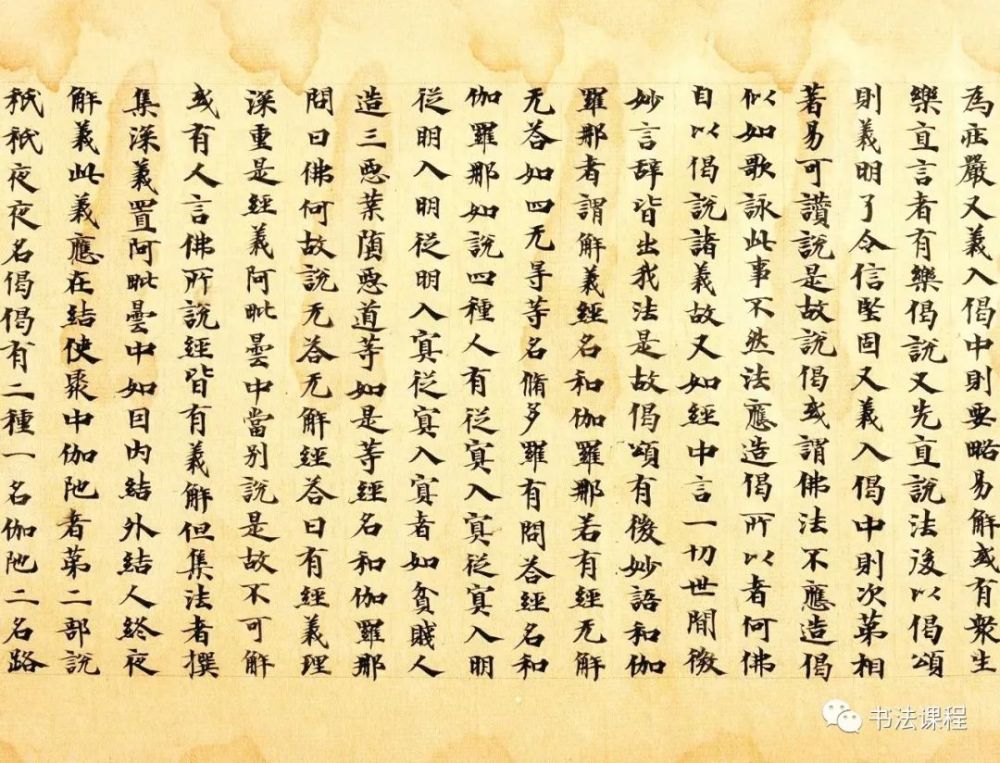 為莊嚴又義入偈中則要略易解或有衆生
樂直言者有樂偈說又先直說法後以偈頌
則義明了令信堅固又義入偈中則次第相
著易可讚說是故說偈或謂佛法不應造偈
似如歌詠此事不然法應造偈所以者何佛
自以偈說諸義故又如經中言一切世間微
妙言辞皆出我法是故偈頌有微妙語和伽
羅那者謂解義經名和伽羅那若有經无解
无荅如四无㝵等名脩多羅有問荅經名和
伽羅那如說四種人有從冥入冥從冥入明
從明入明從明入冥從冥入冥者如貧賤人
造三惡業墮惡道等如是等經名和伽羅那
問曰佛何故說无荅无解經荅曰有經義理
深重是經義阿毗曇中當別說是故不可解
或有人言佛所說經皆有義解但集法者撰
集深義置阿毗曇中如因內結外結人終夜
解義此義應在結使聚中伽陁者第二部說
秖秖夜夜名偈偈有二種一名伽陁二名路
书法课程